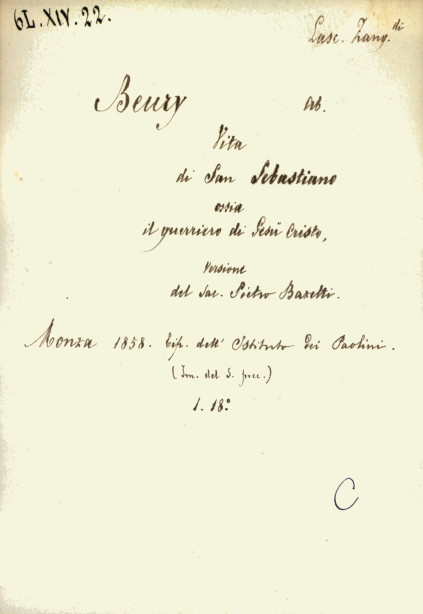 6L.XIV.22.
Lasc. Zang.di
Beury Ab.
Vita
di San Sebastiano
ossia
il guerriero di Gesù Cristo,
Versione
del Sac. Pietro Bazetti.
Monza 1858. Tip. dell' Istituto dei Paolini.
(Im. del S. prec.)
1. 18.°
C